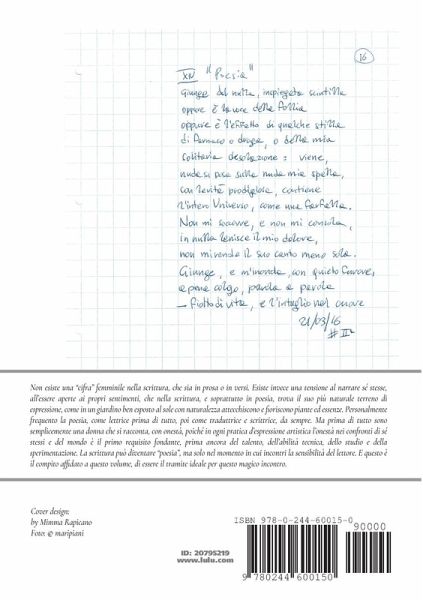 16
XIV "Poesia"
Giunge dal nulla, inspiegata scintilla
oppure è lavoro della follia
oppure è l'effetto di qualche stilla
di farmaco o droga, o della mia
solitaria desolazione: viene,
nuda si posa sulla nuda mia spalla,
con levità prodigiosa, contiene
l'intero Universo, come una farfalla.
Non mi soccorre, e non mi consola,
in nulla lenisce il mio dolore,
non mi rende il suo canto meno sola.
Giunge, e m'inonda, con quieto furore,
e poi colgo, parola a parola
– fiotto di vita, e l'intaglio nel cuore
21/03/16
Non esiste una "cifra" femminile nella scrittura, che sia in prosa o in versi. Esiste invece una tensione al narrare sé stesse,
all'essere aperte ai propri sentimenti, che nella scrittura, e soprattutto in poesia, trova il suo più naturale terreno di
espressione, come in un giardino ben esposto al sole con naturalezza attecchiscono e fioriscono piante ed essenze. Personalmente
frequento la poesia, come lettrice prima di tutto, poi come traduttrice e scrittrice, da sempre. Ma prima di tutto sono
semplicemente una donna che si racconta, con onestà, poiché in ogni pratica d'espressione artistica l'onestà nei confronti di sé
stessi e del mondo è il primo requisito fondante, prima ancora del talento, dell'abilità tecnica, dello studio e della
sperimentazione. La scrittura può diventare "poesia", ma solo nel momento in cui incontri la sensibilità del lettore. E questo è
il compito affidato a questo volume, di essere il tramite ideale per questo magico incontro.
Cover design:
by Mimma Rapicano
Foto: © maripiani
ID: 20795219
www.lulu.com
ISBN 978-0-244-60015-0
90000
9 780244 600150